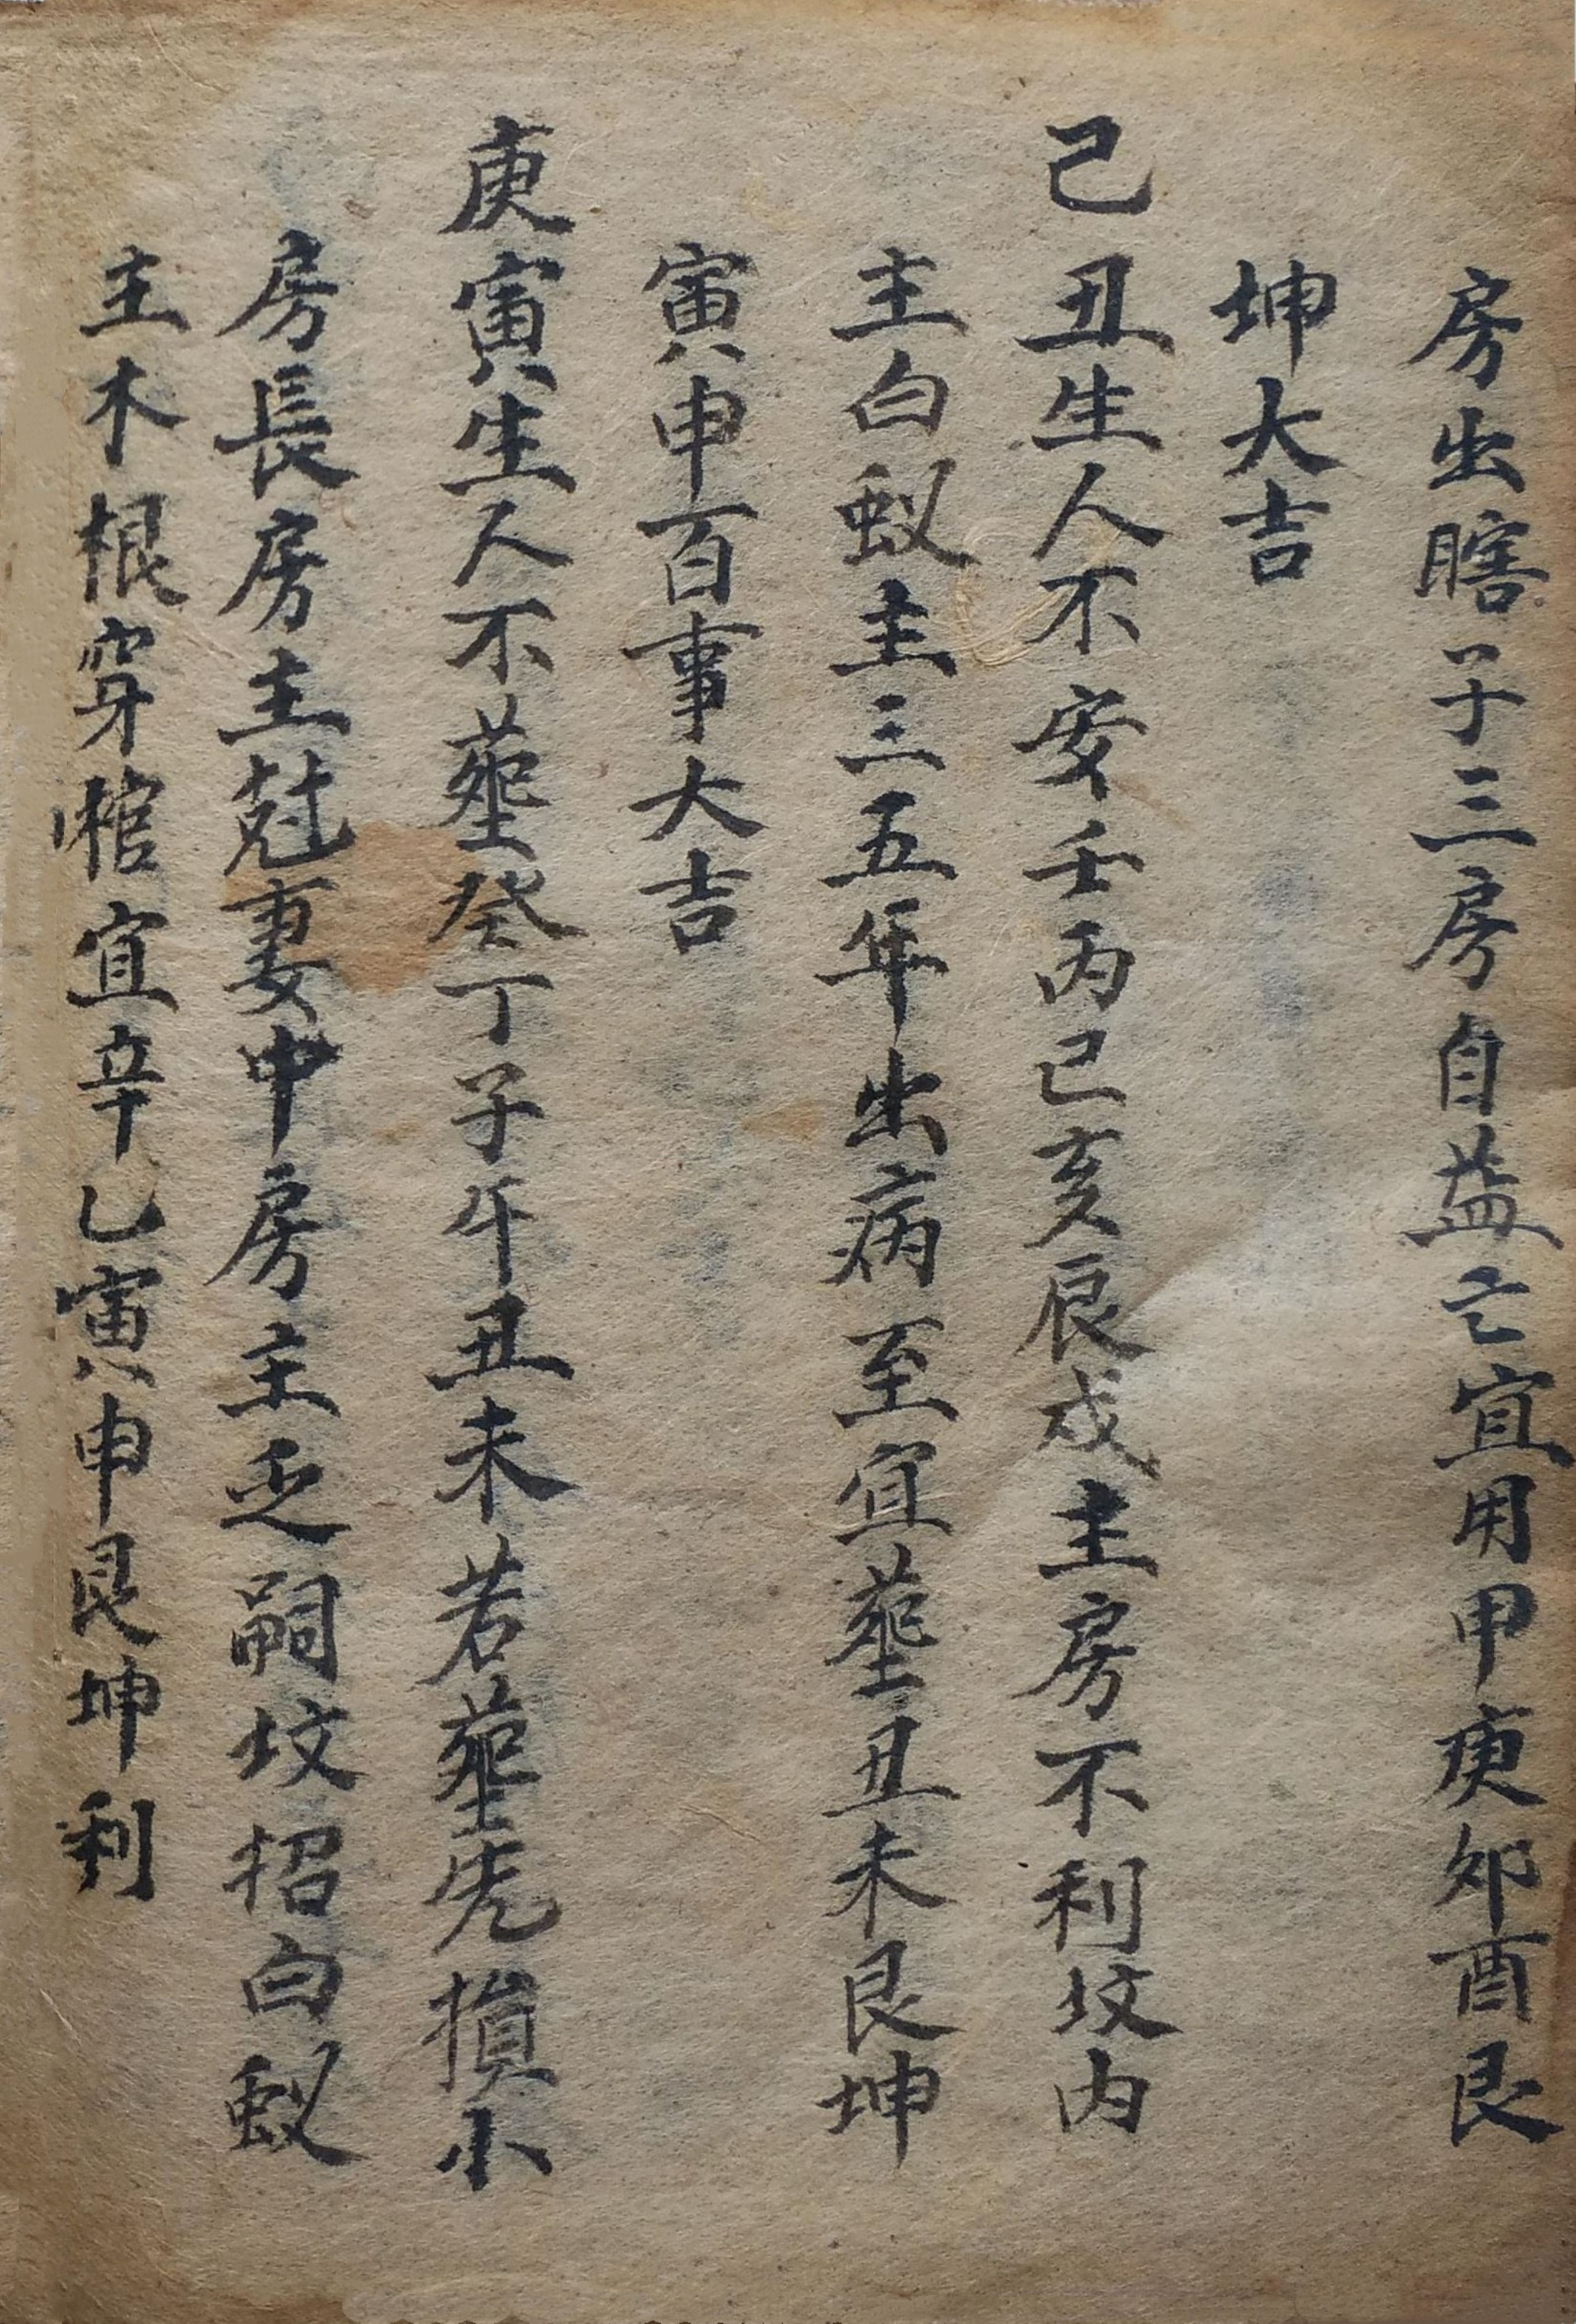 房出瞎子三房自益亡宜用甲庚夘酉艮
坤大吉
己丑生人不安壬丙巳亥辰戌主房不利坟内
主白蚁主三五年出病至宜塟丑未艮坤
寅申百事大吉
庚寅生人不塟癸丁子午丑未若塟先損小
房長房主尅妻中房主乏嗣坟招白蚁
主木根穿棺宜辛乙寅申艮坤利